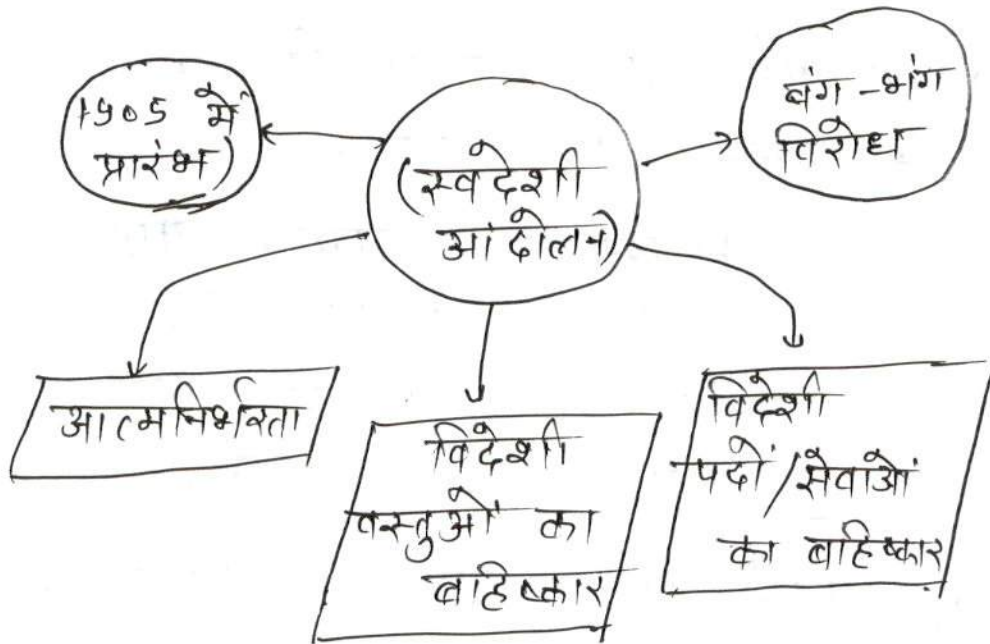 1905 में
प्रारंभ)
(स्वदेशी
आंदोलन)
बंग-भंग
विरोध
आत्मनिर्भरता
विदेशी
वस्तुओं का
बहिष्कार
विदेशी
पदों/सेवाओं
का बहिष्कार